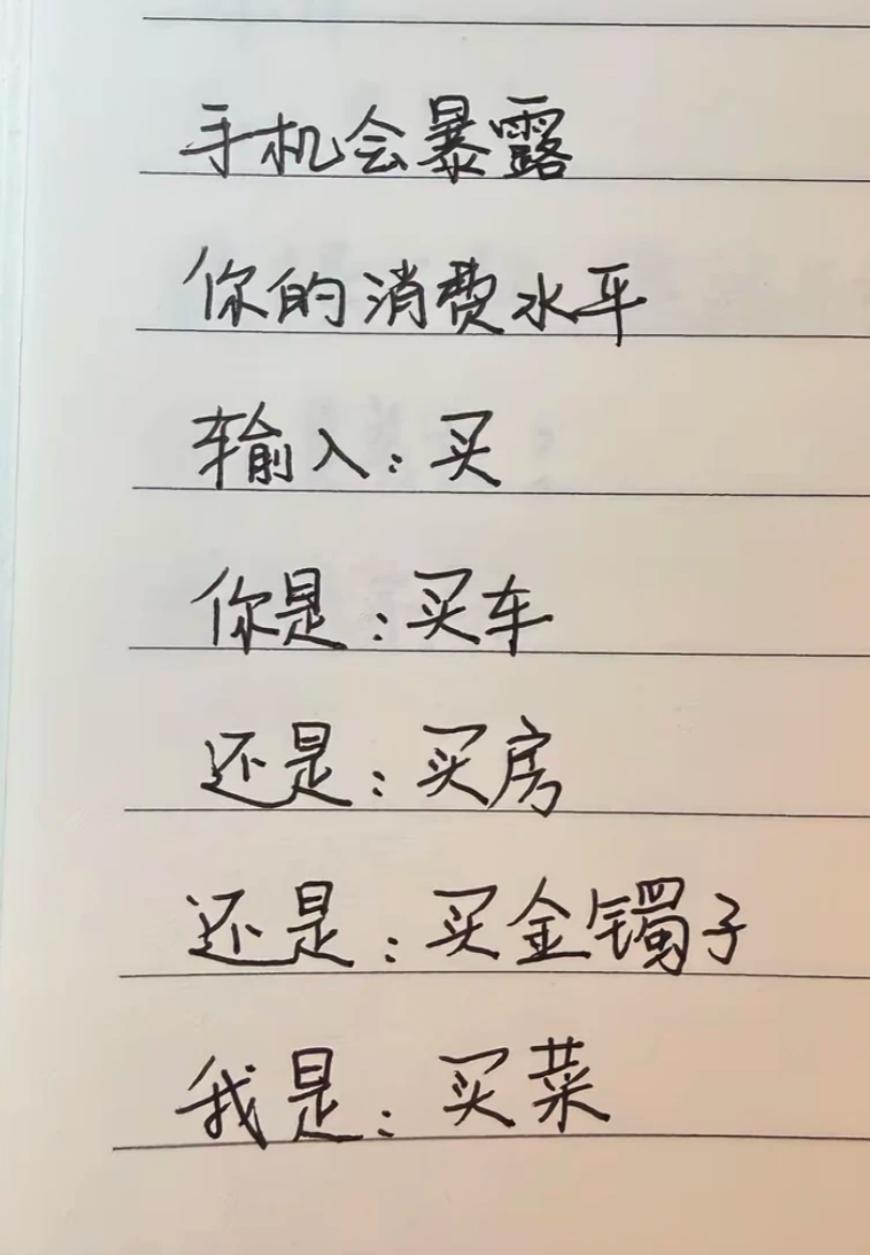 手机会暴露
你的消费水平
输入：买
你是：买车
还是：买房
还是：买金镯子
我是：买菜